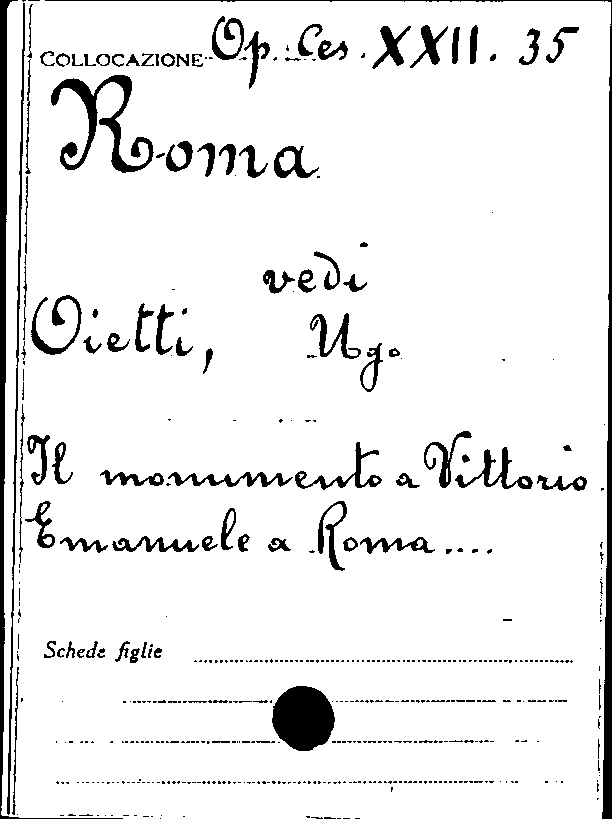 COLLOCAZIONE Op. Ces. XXII. 35
Roma
vedi
Oietti, Ugo
Il monumento a Vittorio
Emanuele a Roma....
Schede figlie